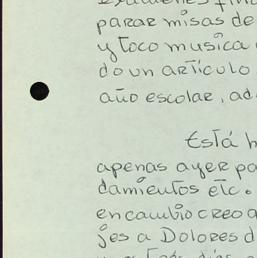 exámenes fina
parar misas de
y toco musica
do un artículo
año escolar, ad
Está h
apenas ayer pa
damientos etc.
en cambio creo q
jes a Dolores d